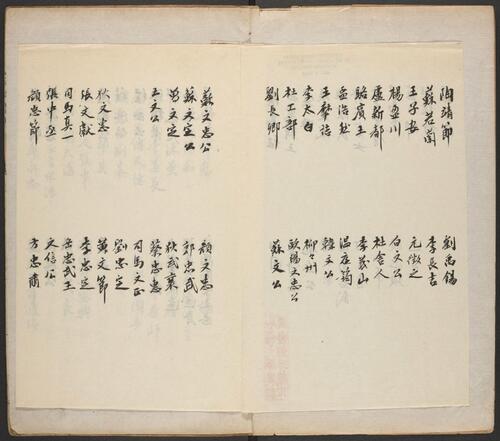 陶靖節
蘇若蘭
王子安
楊盈川
盧新都
駱賓王
孟浩然
王摩詰
李太白
杜工部
劉長卿
劉禹錫
李長吉
元微之
白文公
杜舍人
李義山
温庭筠
韓文公
柳々州
歐陽文忠公
蘇文公
蘇文忠公
蘇文定公
曾文定公
王文公
狄文惠
張文獻
司馬真一
張中丞
顏忠節
顏文忠
郭忠武
狄武襄
蔡忠惠
司馬文正
劉忠定
黃文節
李忠定
岳忠武王
文信公
方忠肅